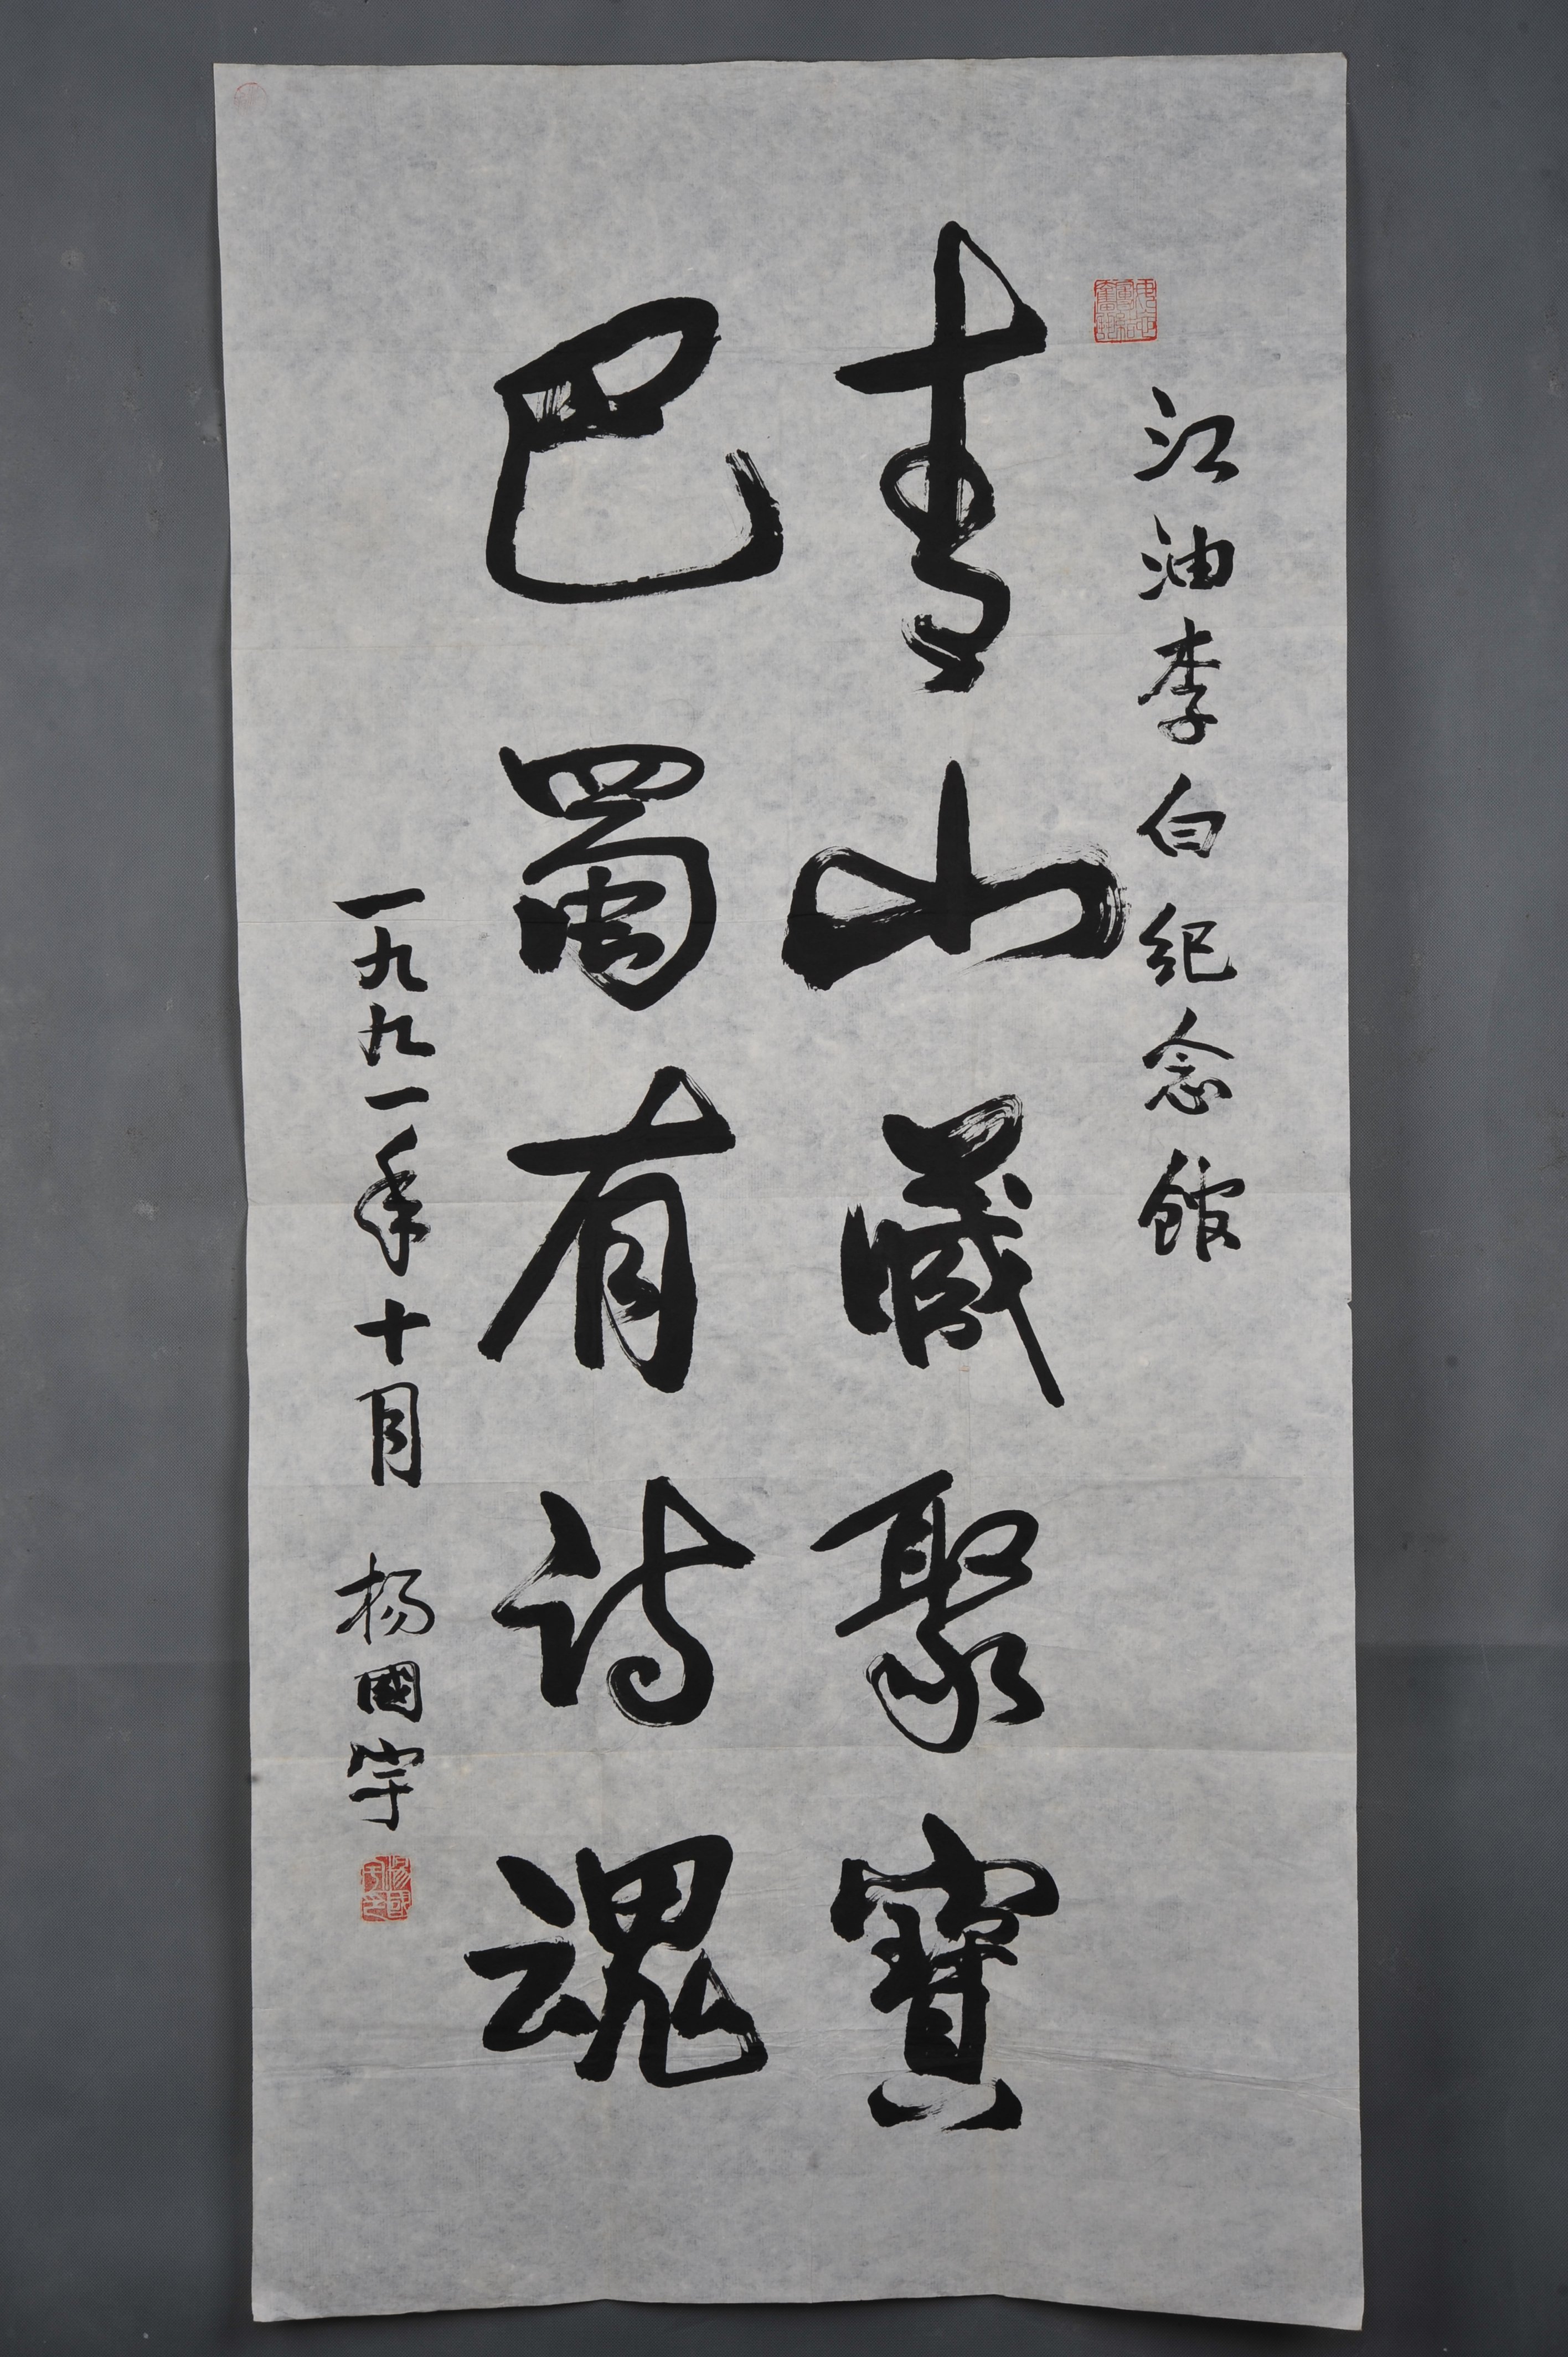 江油李白纪念館
青山藏聚寶
巴蜀有诗魂
一九九一年十月 杨國宇